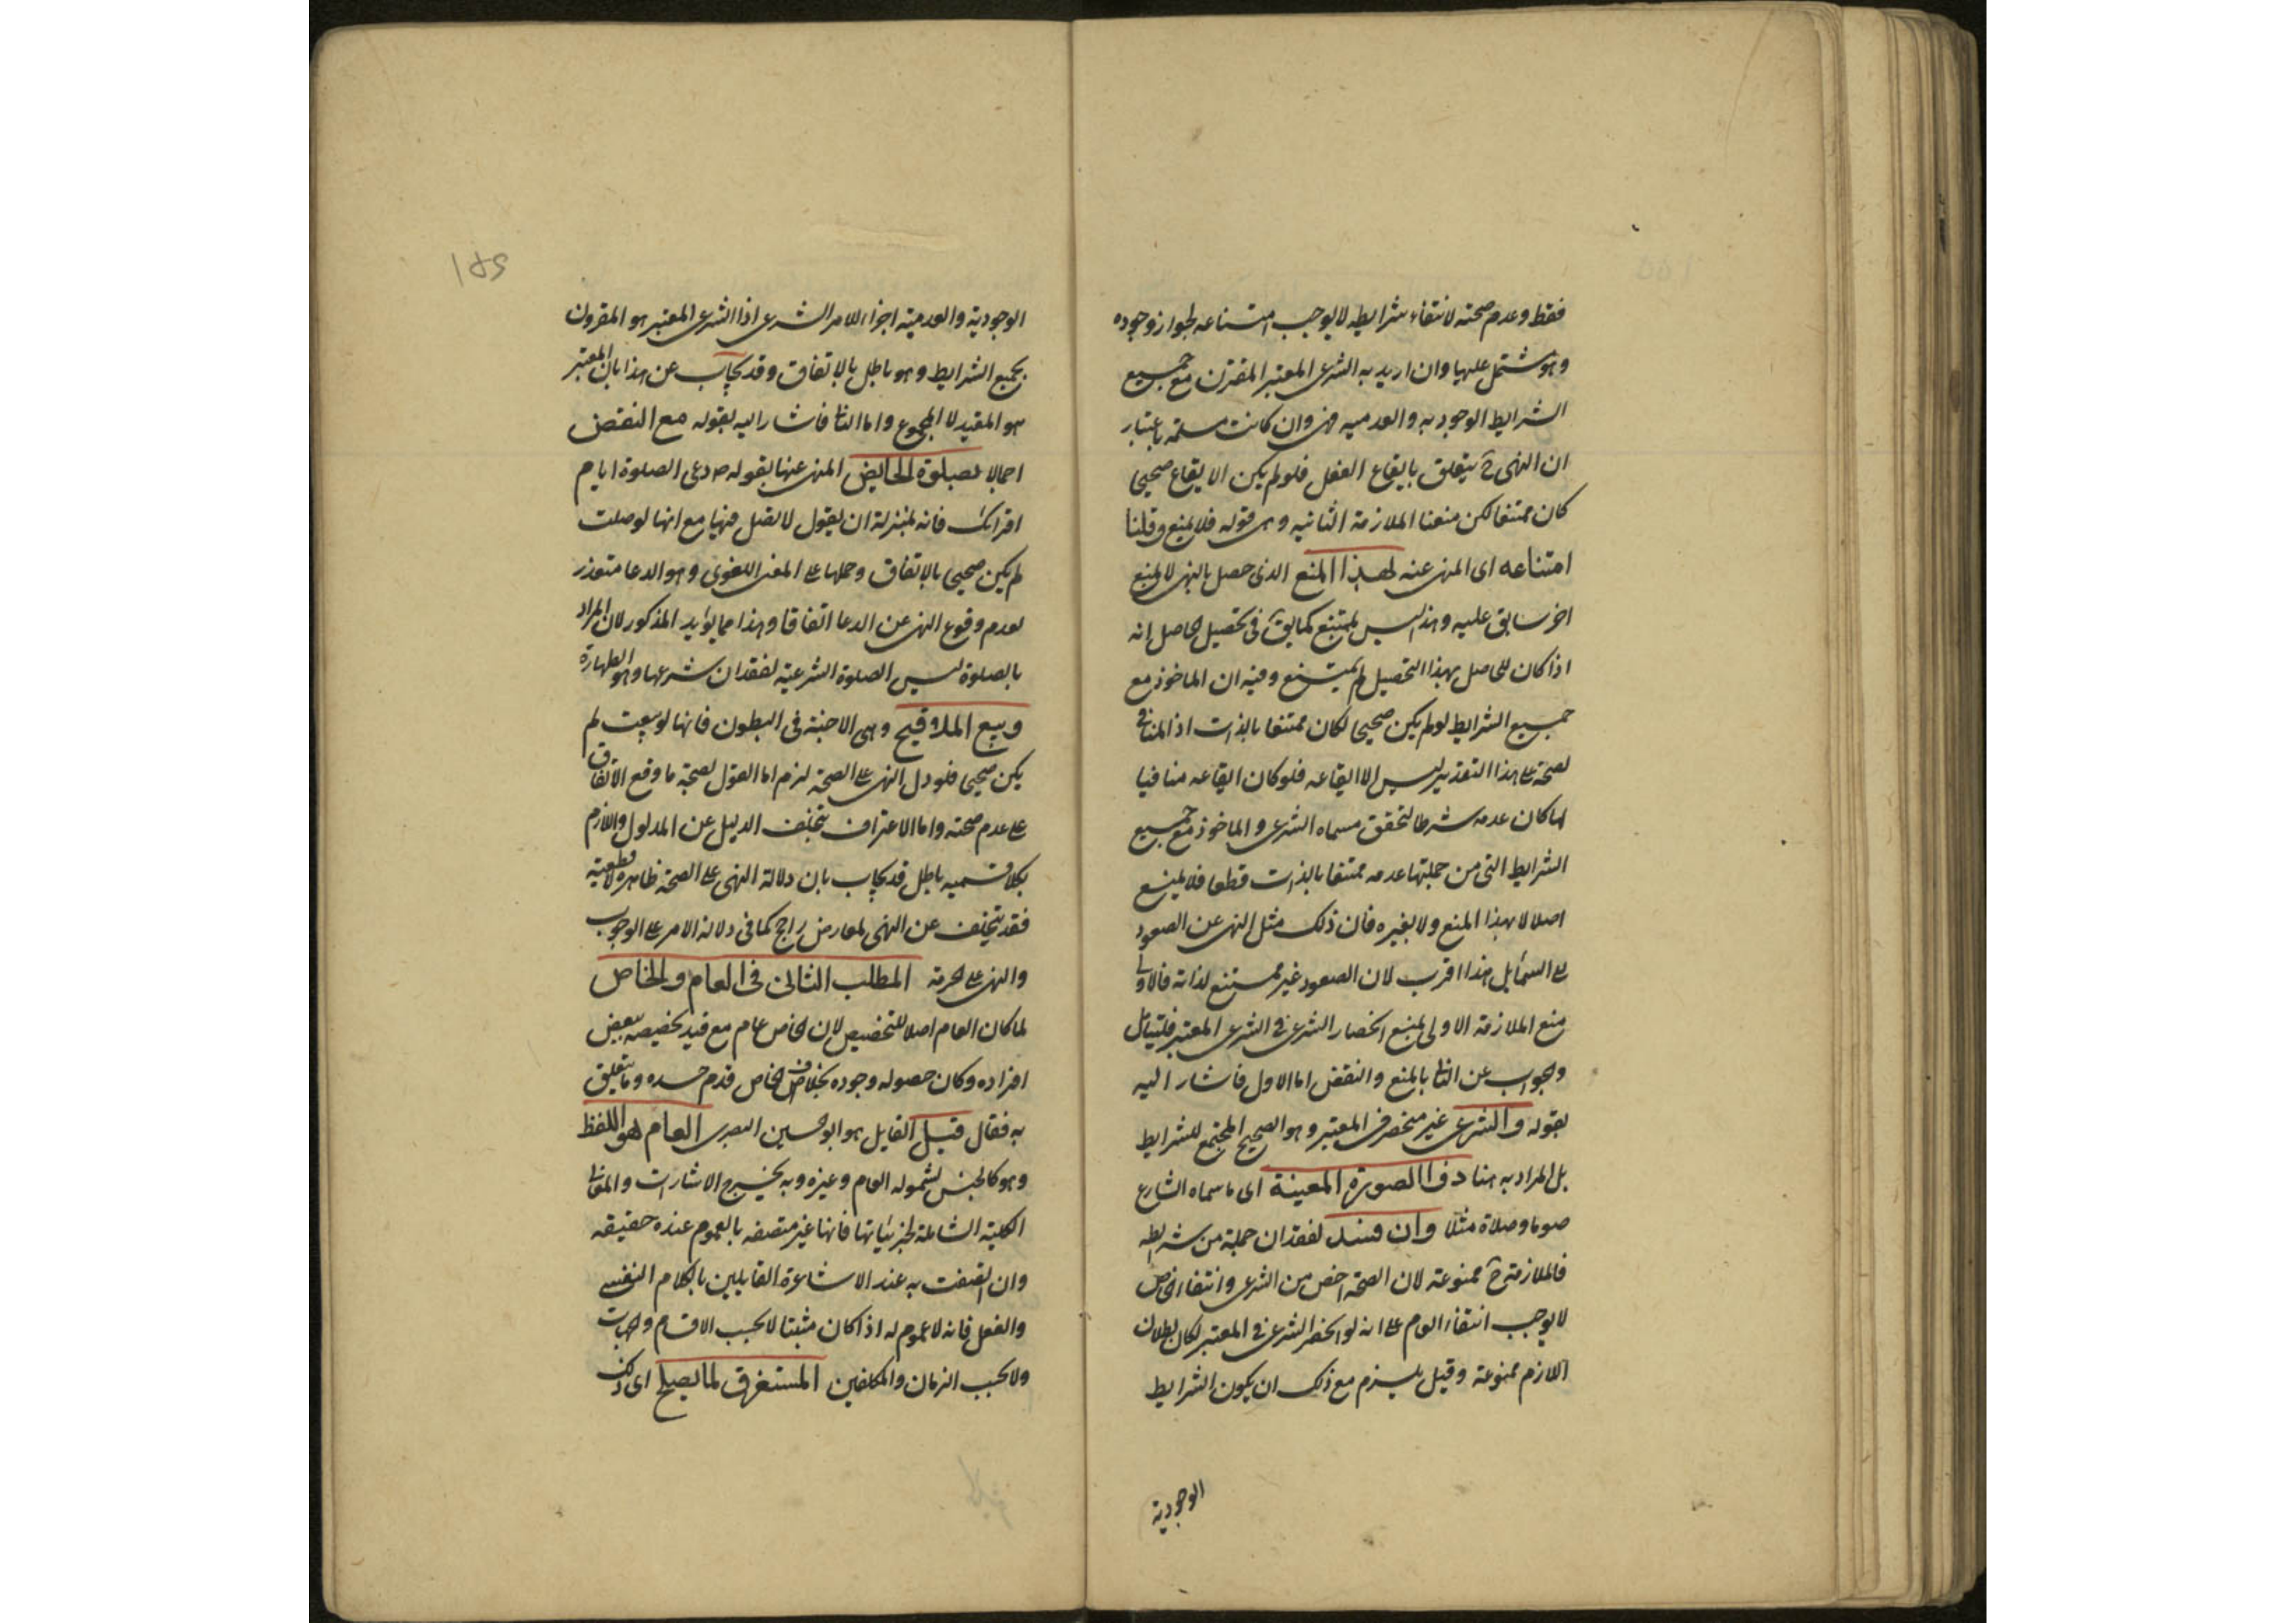 فقط وعدم صحته لانتفاء شرايطه لا يوجب امتناعه لجواز وجوده
وهو مشتمل عليها وان اريد به الشرعى المعتبر المقترن مع جميع
الشرايط الوجوديه والعدميه فهى وان كانت مسلمة باعتبار
ان النهى ح يتعلق بايقاع الفعل فلو لم يكن الايقاع صحيحا
كان ممتنعا لكن منعنا الملازمة الثانيه وهى قوله فلا يمنع وقلنا
امتناعه اى المنهى عنه لهذا المنع الذى حصل بالنهى لا لمنع
اخر سابق عليه وهذا ليس بممتنع كما يق فى تحصيل الحاصل انه
اذا كان للحاصل بهذا التحصيل لم يمتنع وفيه ان الماخوذ مع
جميع الشرايط لو لم يكن صحيحا لكان ممتنعا بالذات اذ المنافى
لصحة على هذا التقدير ليس الا ايقاعه فلو كان ايقاعه منافيا
لها كان عدمه شرطا لتحقق مسماه الشرعى والماخوذ مع جميع
الشرايط التى من جملتها عدمه ممتنعا بالذات قطعا فلا يمنع
اصلا لا بهذا المنع ولا بغيره فان ذلك مثل النهى عن الصعود
على السما بل هذا اقرب لان الصعود غير ممتنع لذاته فالاولى
منع الملازمة الاولى لمنع انحصار الشرعى فى الشرعى المعتبر فليتامل
والجواب عن الثانى بالمنع والنقض اما الاول فاشار اليه
بقوله والشرعى غير منحصر فى المعتبر وهو الصحيح المجتمع للشرايط
بل المراد به هنا ذو الصورة المعينة اى ما سماه الشارع
صوما وصلاة مثلا وان فسد لفقدان جملة من شرايطه
فالملازمة ح ممنوعة لان الصحة اخص من الشرعى وانتفاء الخاص
لا يوجب انتفاء العام على انه لو انحصر الشرعى فى المعتبر لكان بطلان
اللازم ممنوعة وقيل يلزم مع ذلك ان يكون الشرايط
الوجودية
الوجودية والعدمية اجزاء للامر الشرعى اذ الشرعى المعتبر هو المقرون
بجميع الشرايط وهو باطل بالاتفاق وقد يجاب عن هذا بان المعتبر
هو المقيد لا المجموع واما الثانى فاشار اليه بقوله مع النقض
اجمالا بصلوة الحايض المنهى عنها بقوله ص دعى الصلوة ايام
اقرائك فانه بمنزلة ان يقول لا تصل فيها مع انها لو صلت
لم يكن صحيحا بالاتفاق وحملها على المعنى اللغوى وهو الدعا متعذر
لعدم وقوع النهى عن الدعا اتفاقا وهذا مما يؤيد المذكور لان المراد
بالصلوة ليس الصلوة الشرعية لفقدان شرطها وهو الطهارة
وبيع الملاقيح وهى الاجنة فى البطون فانها لو بيعت لم
يكن صحيحا فلو دل النهى على الصحة لزم اما القول لصحة ما وقع الاتفاق
على عدم صحته واما الاعتراف بتخلف الدليل عن المدلول واللازم
بكلا قسميه باطل قد يجاب بان دلالة النهى على الصحة ظاهرة لا قطعية
فقد يتخلف عن النهى لمعارض راجح كما فى دلالة الامر على الوجوب
والنهى على الحرمة المطلب الثانى فى العام والخاص
لما كان العام اصلا للتخصيص لان الخاص عام مع قيد تخصيصه ببعض
افراده وكان حصوله وجوده بخلاف الخاص قدم حده وما يتعلق
به فقال قيل القايل هو ابو الحسين البصرى العام هو اللفظ
وهو كالجنس لشموله العام وغيره وبه يخرج الاشارات والمعانى
الكلية الشاملة لجزئياتها فانها غير متصفه بالعموم عنده حقيقه
وان اتصفت به عند الاشاعرة القايلين بالكلام النفسى
والفعل فانه لا عموم له اذا كان مثبتا لا بحسب الاقسام والجهات
ولا بحسب الزمان والمكلفين المستغرق لما يصلح اى ذلك